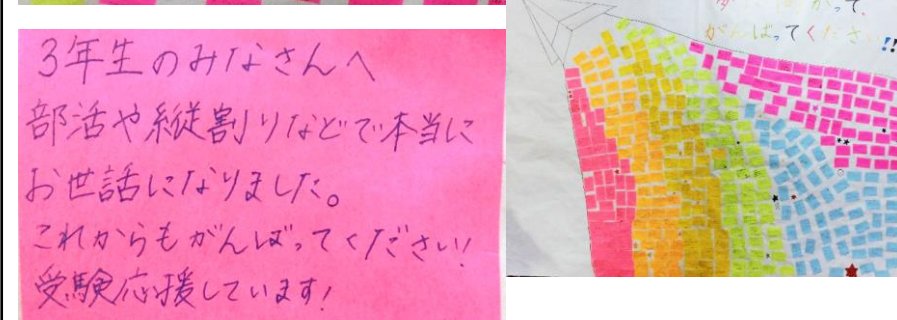 3年生のみなさんへ
部活や縦割りなどで本当に
お世話になりました。
これからもがんばってください!
受験応援しています!
かって、
がんばってください!!